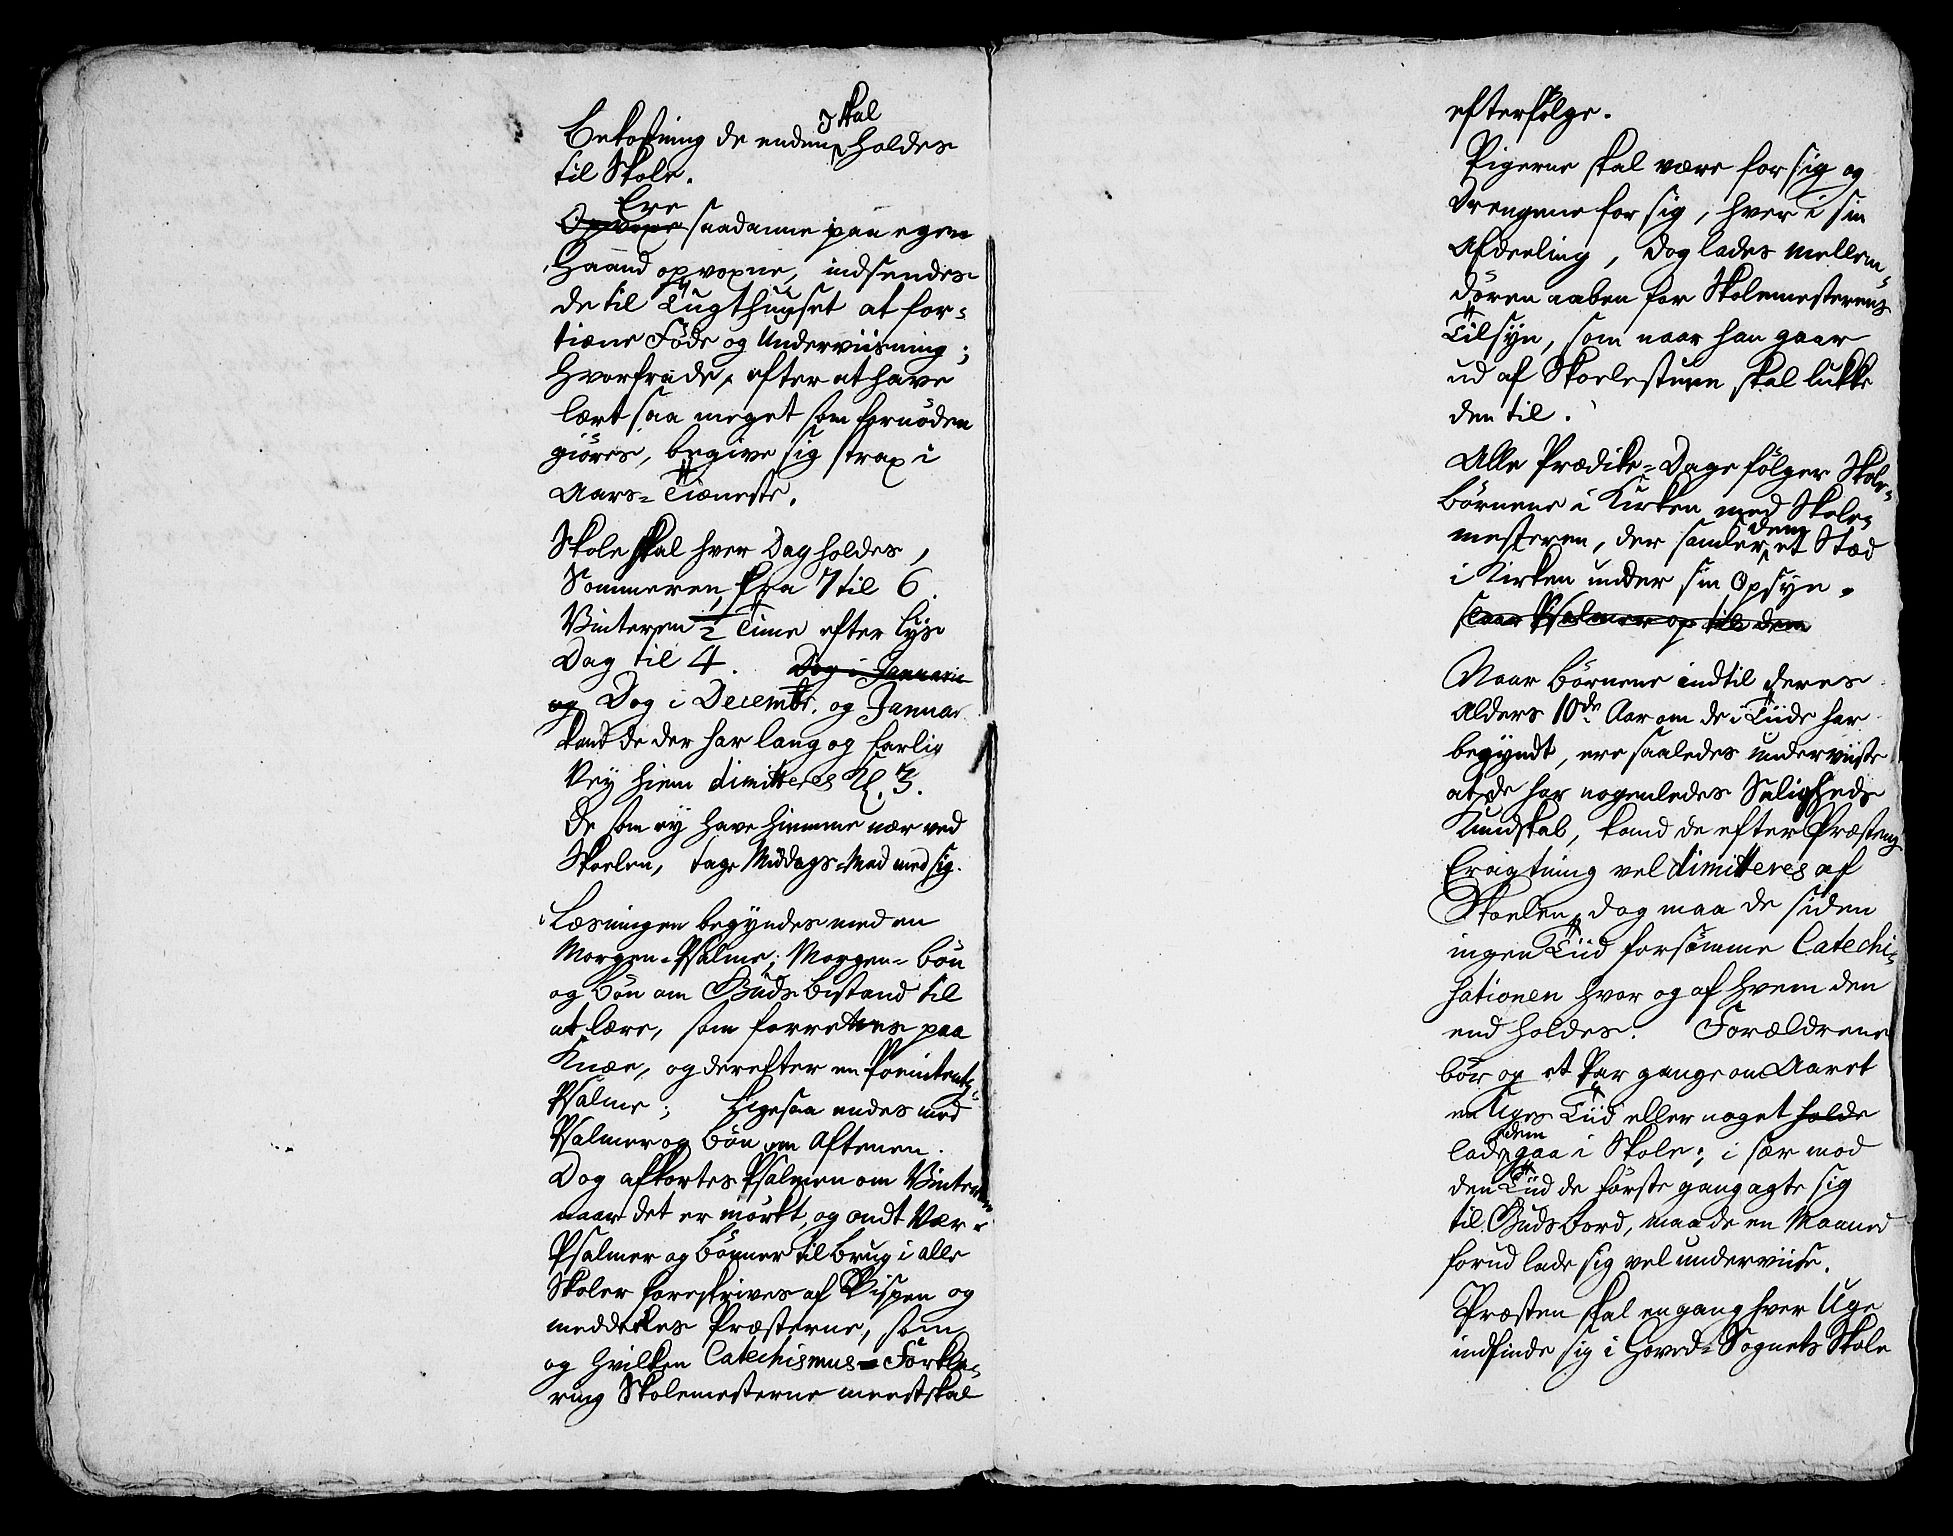 skal
Bekostning de enden holdes
til Skole.
Ere
Opvoxe saadanne paa egen
Haand opvoxne, indsendes
de til Tugthuuset at for=
tiene Föde og Underviisning;
hvorfra de, efter at have
lært saa meget som fornöden
giöres, begive sig strax i
Aars=Tieneste.
Skole skal hver Dag holdes,
Sommeren fra 7 til 6.
Vinteren 1/2 Time efter lys
Dag til 4. Dog i Januario
og Dog i Decembr. og Januar
kand de der har lang og farlig
Vey hiem dimitteres Kl. 3.
De som ey have hiemme nær ved
Skoelen, tage Middags-Mad med sig.
Læsningen begyndes med en
Morgen-Psalme; Morgen=bön
og bön om Guds bistand til
at lære, som forrettes paa
Knæe, og derefter en Poenitentz=
Psalme; Ligesaa endes med
Psalmer og bön om Aftenen.
Dog afkortes Psalmen om Vinteren
naar det er mörkt, og ondt Vær.
Psalmer og bönner til brug i alle
Skoler foreskrives af Bispen og
meddeeles Præsterne, som
og hvilken Catechismus=Forkla=
ring Skolemesterne meest skal
efterfölge.
Pigerne skal være for sig og
Drengene for sig, hver i sin
Afdeeling, dog lades mellem=
dören aaben for Skolemesterens
Tilsyn, som naar han gaar
ud af Skoelestuen skal lukke
den til.
Alle Prædike=Dage fölger Skole=
börnene i Kirken med Skole=
mesteren, der samler dem et Stæd
i Kirken under sin Opsyn.
slaar Psalmer op til dem
Naar börnene indtil deres
Alders 10de Aar om de i Tiide har
begyndt, ere saaledes underviiste
at de har nogenledes Saligheds
Kundskab, kand de efter Præstens
Eragtning vel dimitteres af
Skoelen, dog maa de siden
ingen Tiid forsömme Catechi=
sationen hvor og af hvem den
end holdes. Forældrene
bör og et Par gange om Aaret
en Uges Tiid eller noget holde
lade dem gaa i Skole; i sær mod
den Tiid de förste gang agte sig
til Guds bord, maa de en Maaned
forud lade sig vel underviise.
Præsten skal en gang hver Uge
indfinde sig i Hoved-Sognets Skole